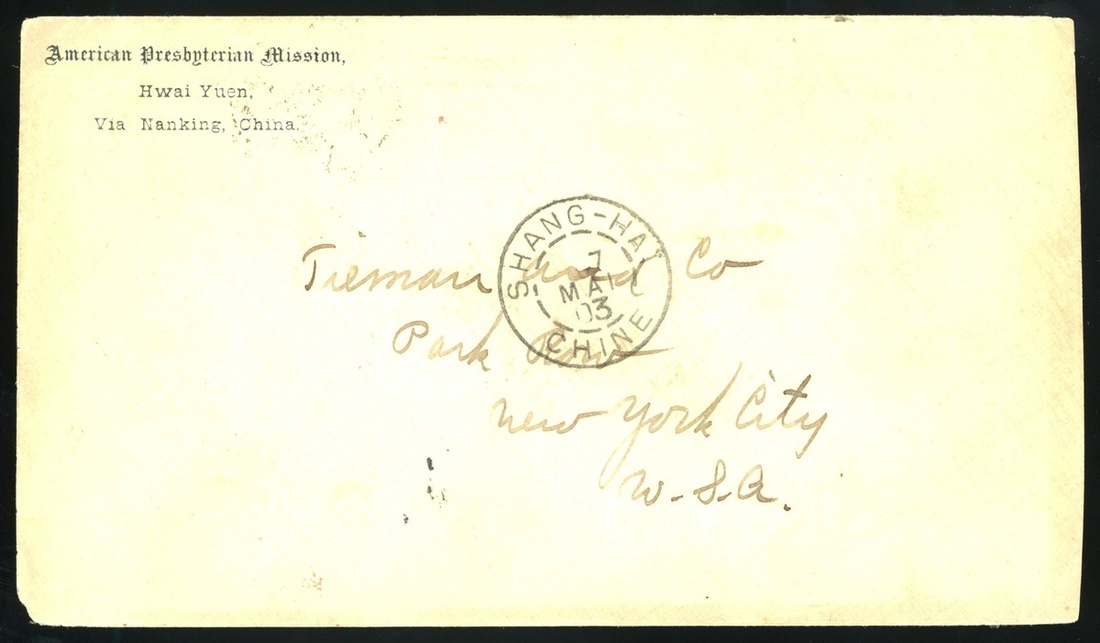 American Presbyterian Mission,
Hwai Yuen,
Via Nanking, China.
SHANG-HAI
7
MAI
03
CHINE
Tieman and Co
Park Row
New York City
U.S.A.